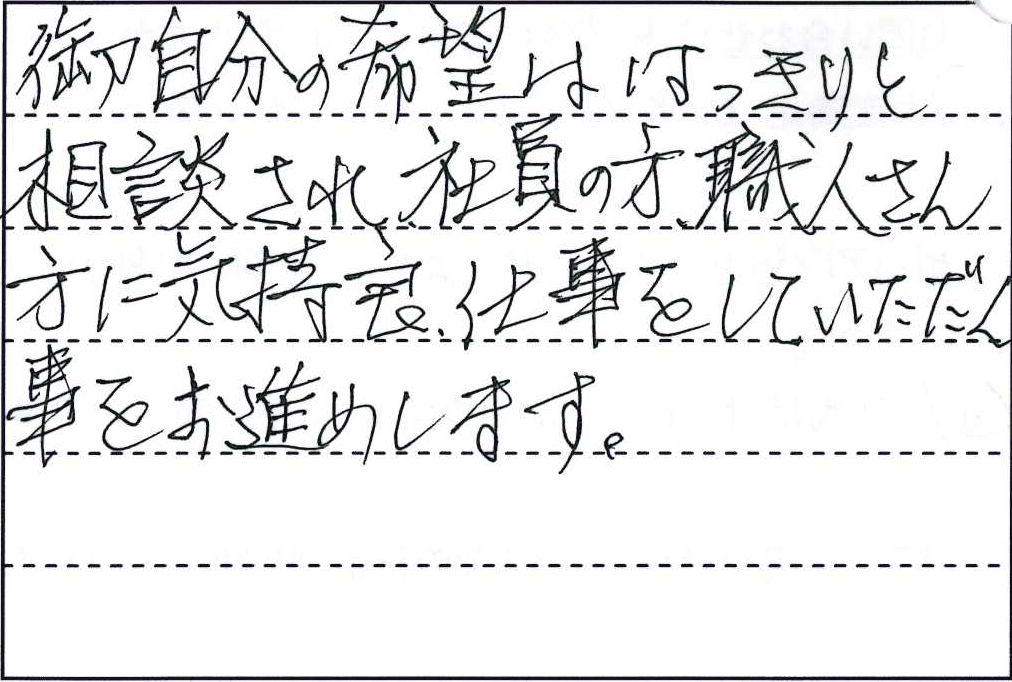 御自分の希望ははっきりと
相談され、社員の方、職人さん
方に気持良、仕事をしていただん
事をお進めします。